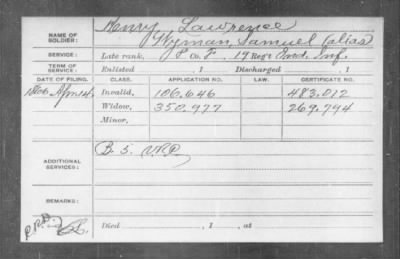 NAME OF SOLDIER:
Henry, Lawrence
Wyman, Samuel (alias)
SERVICE:
Late rank, Co. F, 19 Reg't Inf.
TERM OF SERVICE:
Enlisted , 1 Discharged , 1
DATE OF FILING. CLASS. APPLICATION NO. LAW. CERTIFICATE NO.
Invalid, 106.646 483.012
Widow, 350.977 269.794
Minor,
ADDITIONAL SERVICES:
B. 5. V.R.C.
REMARKS:
Died , 1 , at